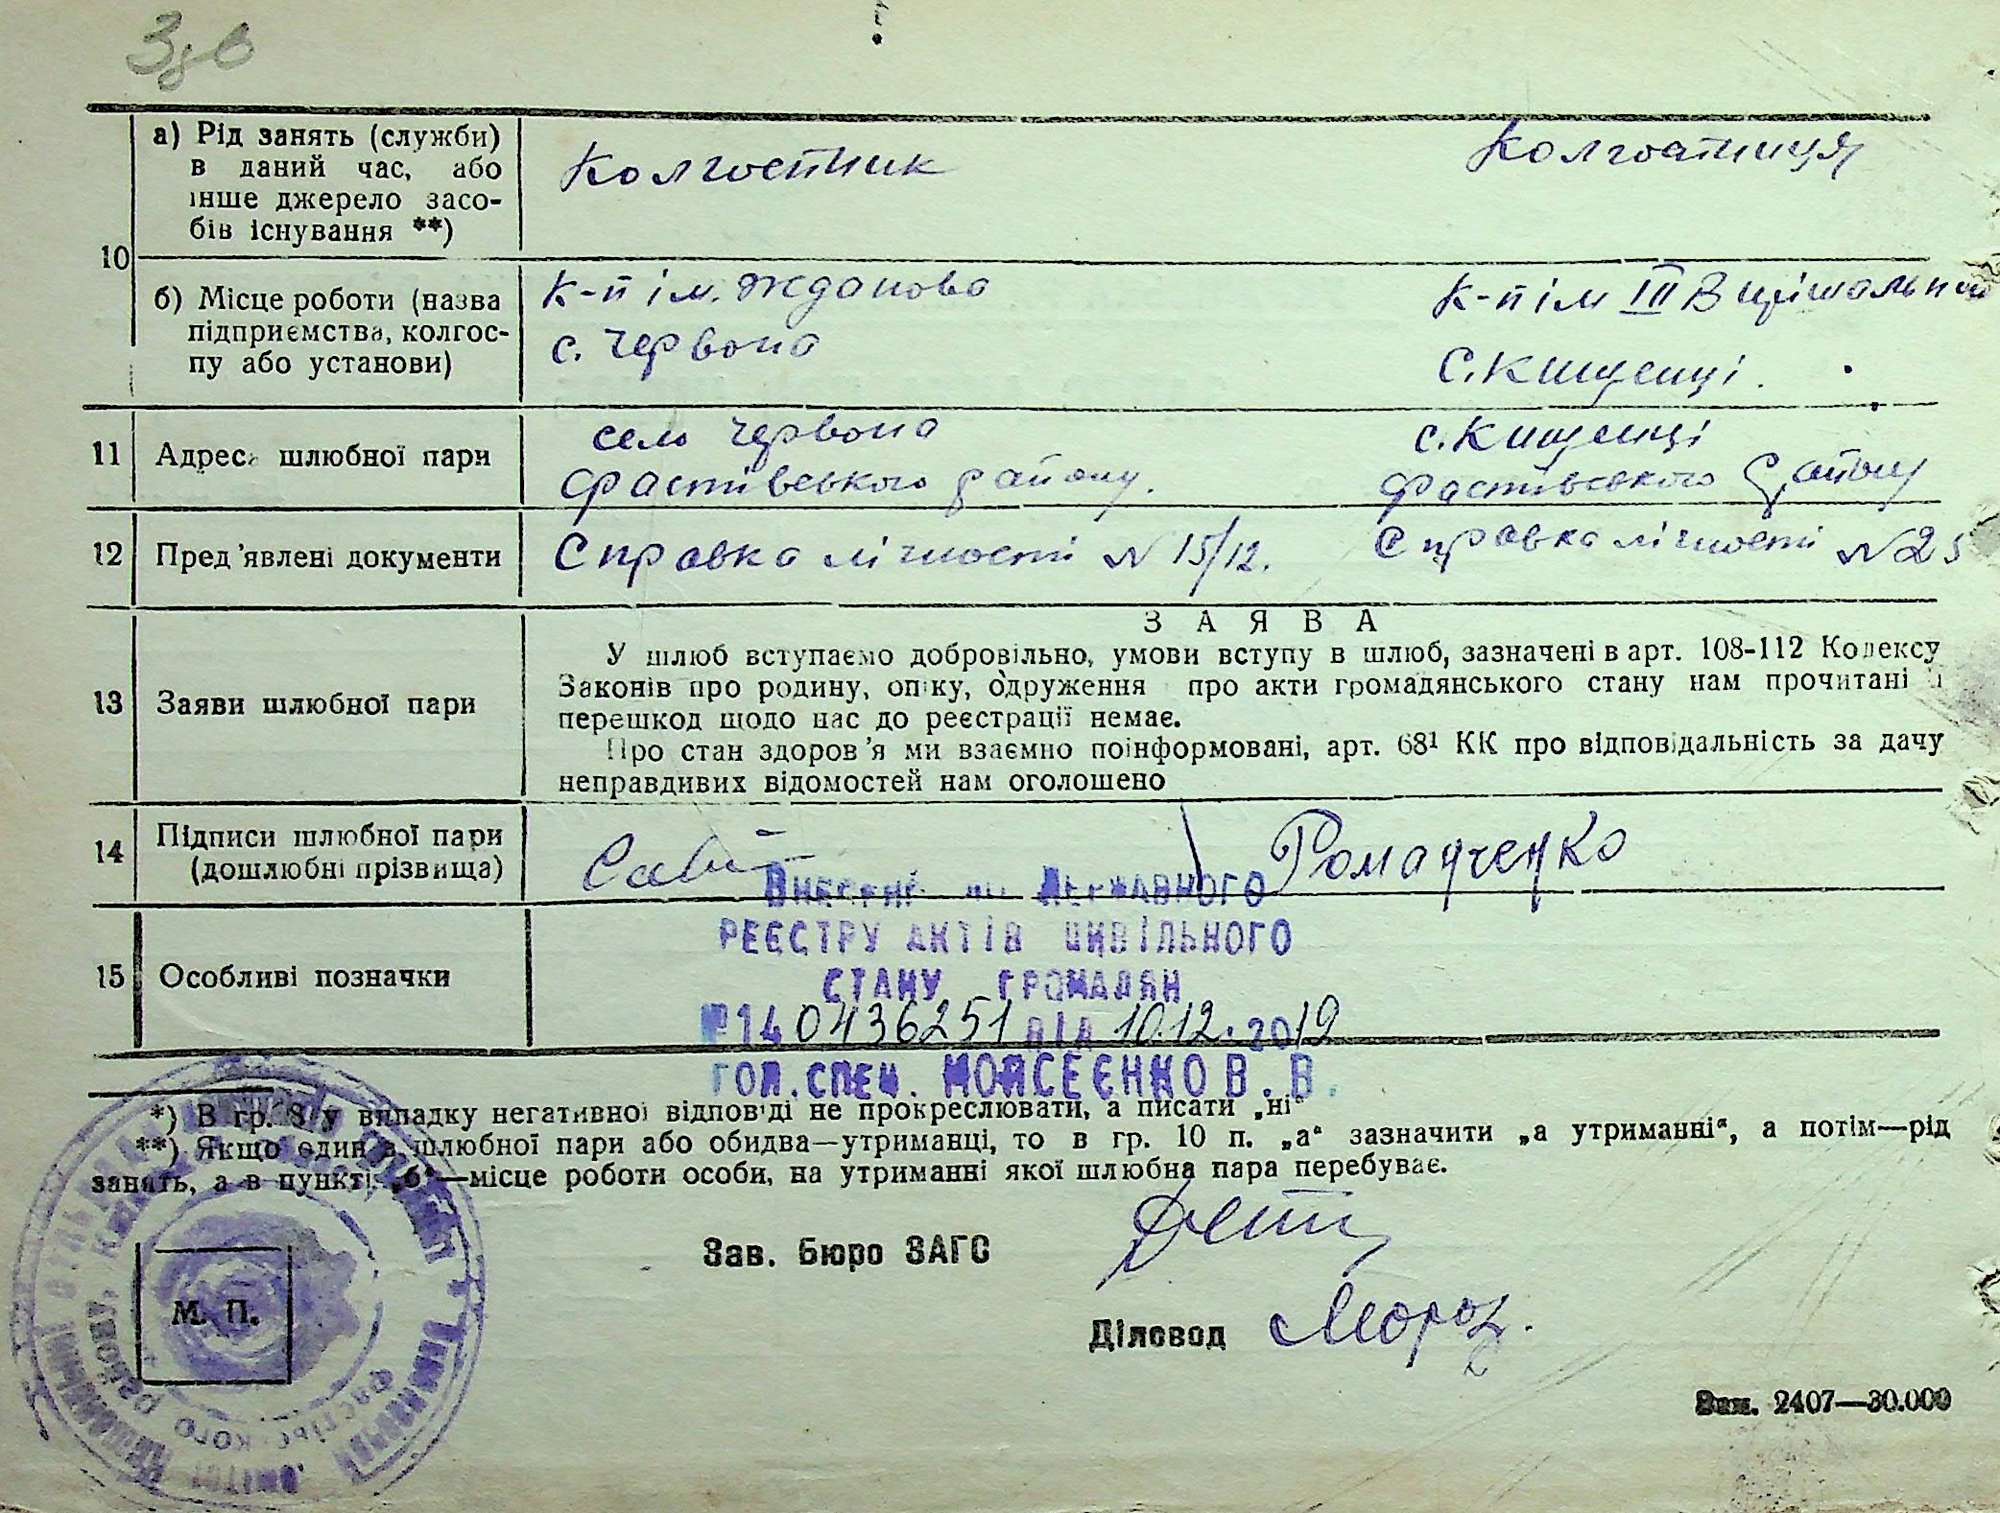 а) Рід занять (служби) в даний час, або інше джерело засобів існування **)
Колгоспник
Колгоспниця
10
б) Місце роботи (назва підприємства, колгоспу або установи)
К-п ім. Жданова
с. Червона
К-п ім III Вирішальной
с. Кищенці.
11
Адреса шлюбної пари
село Червона
Фастівського району.
с. Кищенці
Фастівського району
12
Пред'явлені документи
Справка лічності N 15/12.
Справка лічності N 25
З А Я В А
13
Заяви шлюбної пари
У шлюб вступаємо добровільно, умови вступу в шлюб, зазначені в арт. 108-112 Кодексу
Законів про родину, опіку, одруження про акти громадянського стану нам прочитані і
перешкод щодо нас до реєстрації немає.
Про стан здоров'я ми взаємно поінформовані, арт. 68¹ КК про відповідальність за дачу
неправдивих відомостей нам оголошено
14
Підписи шлюбної пари
(дошлюбні прізвища)
Романченко
Внесені до Державного
реєстру актів цивільного
15
Особливі позначки
стану громадян
№ 140436251 від 10.12.2019
гол. спец. Мойсеєнко В. В.
*) В гр. 8 у випадку негативної відповіді не прокреслювати, а писати „ні“
**) Якщо один з шлюбної пари або обидва—утриманці, то в гр. 10 п. „а“ зазначити „а утриманні“, а потім—рід
занять, а в пункті „б“—місце роботи особи, на утриманні якої шлюбна пара перебуває.
Зав. Бюро ЗАГС
М. П.
Діловод
Мороз.
Зам. 2407—30.000